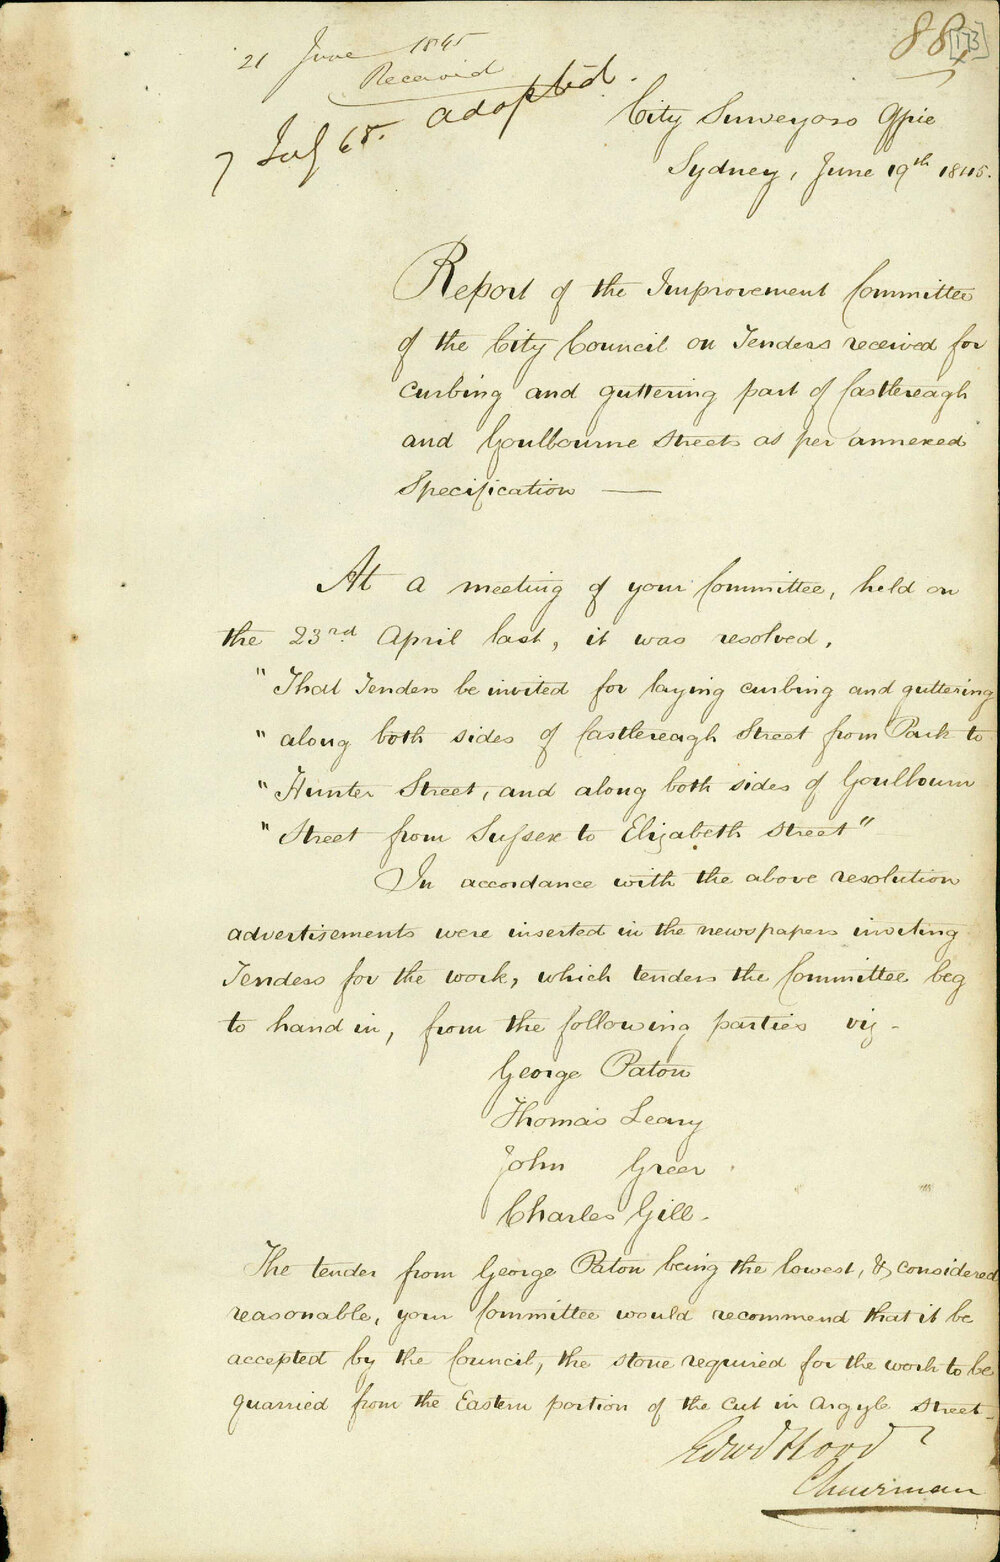 88 [173]
21 June 1845
Received
7 July 45. adopted.
City Surveyors Office
Sydney, June 19th 1845.
Report of the Improvement Committee
of the City Council on Tenders received for
curbing and guttering part of Castlereagh
and Goulbourne Streets as per annexed
Specification —
At a meeting of your Committee, held on
the 23rd April last, it was resolved,
"That Tenders be invited for laying curbing and guttering
"along both sides of Castlereagh Street from Park to
"Hunter Street, and along both sides of Goulbourn
"Street from Sussex to Elizabeth Street"
In accordance with the above resolution
advertisements were inserted in the newspapers inviting
Tenders for the work, which tenders the Committee beg
to hand in, from the following parties viz-
George Paton
Thomas Leary
John Greer.
Charles Gill.
The tender from George Paton being the lowest, & considered
reasonable, your Committee would recommend that it be
accepted by the Council, the stone required for the work to be
quarried from the Eastern portion of the cut in Argyle Street-
Edwd Flood
Chairman